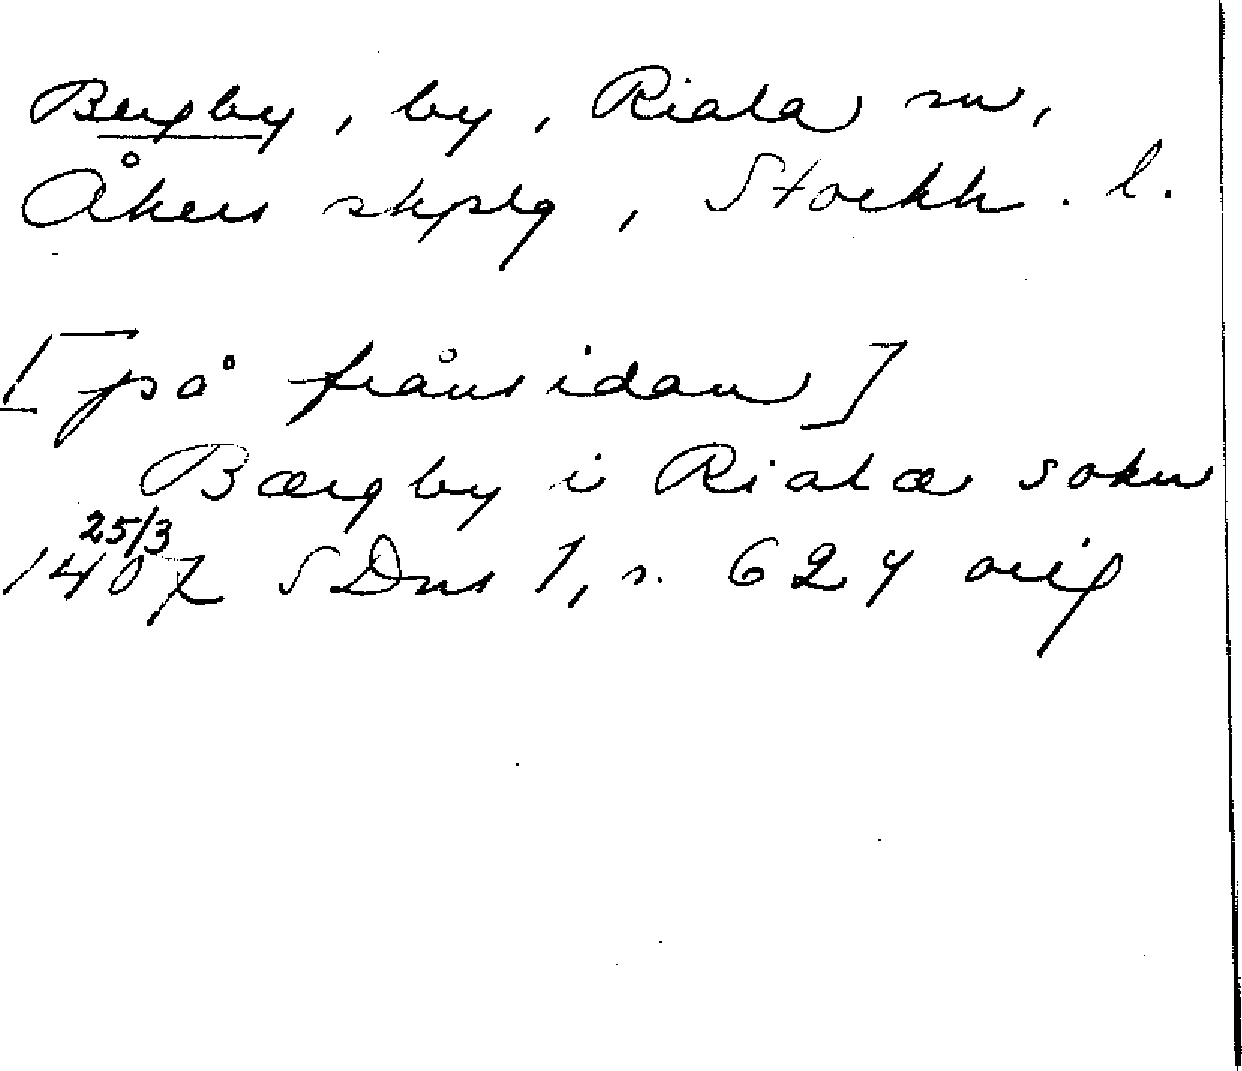 Bergby, by, Riala sn,
Åkers skplg, Stockh. l.
[på frånsidan]
Bærgby i Rialæ sokn
25/3
1407 SDns 1, s. 627 orig